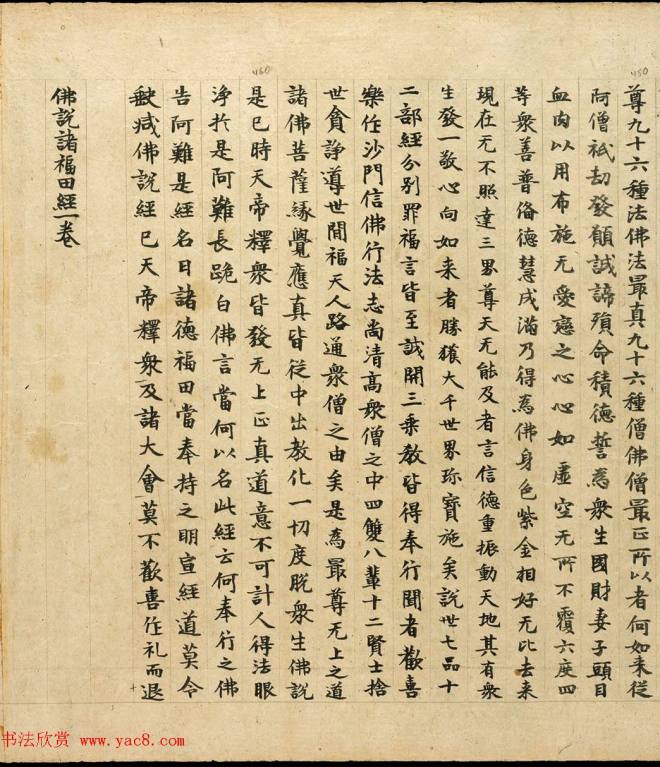 尊九十六種法佛法最真九十六種僧佛僧最正所以者何如来從
阿僧祇劫發願誠諦殞命積德誓為衆生國財妻子頭目
血肉以用布施无愛戀之心心如虛空无所不覆六度四
等衆善普俻德慧成滿乃得為佛身色紫金相好无比去来
現在无不照達三界尊天无能及者言信德重振動天地其有衆
生發一敬心向如来者勝獲大千世界珎寶施矣說世七品十
二部經分別罪福言皆至誠開三乘教皆得奉行聞者歡喜
樂作沙門信佛行法志尚清高衆僧之中四雙八輩十二賢士捨
世貪諍導世間福天人路通衆僧之由矣是為最尊无上之道
諸佛菩薩緣覺應真皆從中出教化一切度脫衆生佛說
是已時天帝釋衆皆發无上正真道意不可計人得法眼
淨於是阿難長跪白佛言當何以名此經云何奉行之佛
告阿難是經名曰諸德福田當奉持之明宣經道莫令
缺減佛說經已天帝釋衆及諸大會莫不歡喜作礼而退
佛說諸福田經一卷
450
450
书法欣赏 www.yac8.com